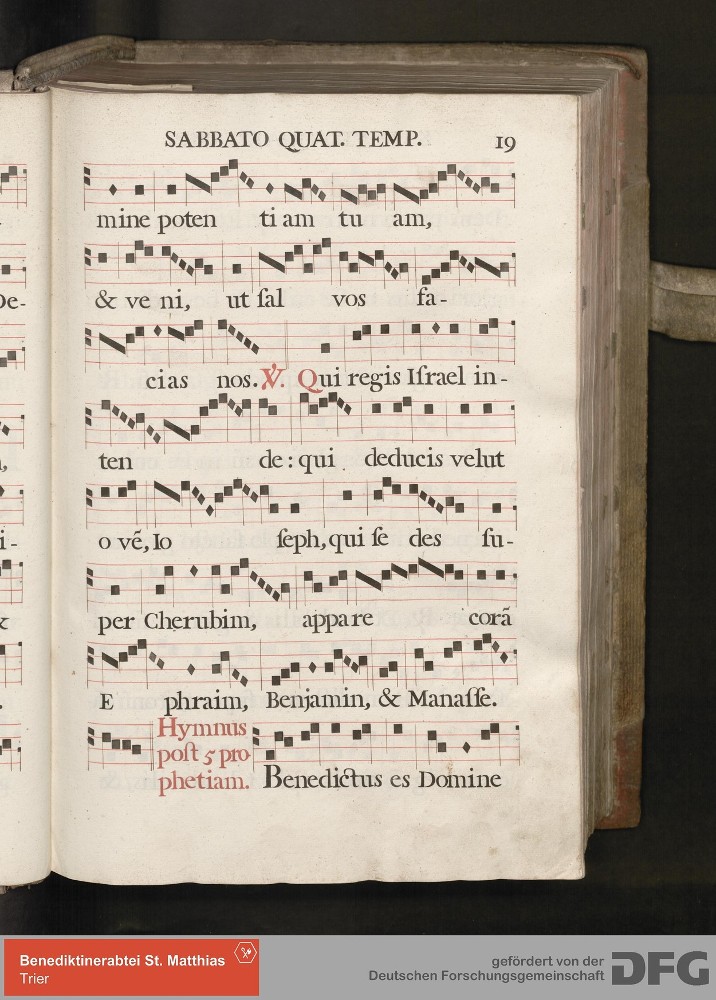 SABBATO QUAT. TEMP. 19
mine poten ti am tu am,
& ve ni, ut ſal vos fa-
cias nos. ℣. Qui regis Iſrael in-
ten de: qui deducis velut
o vẽ, Io ſeph, qui ſe des ſu-
per Cherubim, appare corã
E phraim, Benjamin, & Manaſſe.
Hymnus
poſt 5 pro
phetiam. Benedictus es Domine
Benediktinerabtei St. Matthias
Trier
gefördert von der
Deutschen Forschungsgemeinschaft DFG